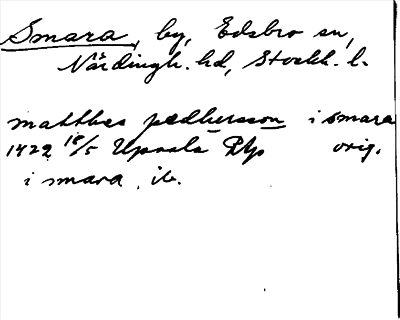 Smara, by, Edsbro sn,
Närdingh. hd, Stockh. l.
matthes pædhersson i smara
1422 18/5 Upsala Rlp orig.
i smara ib.